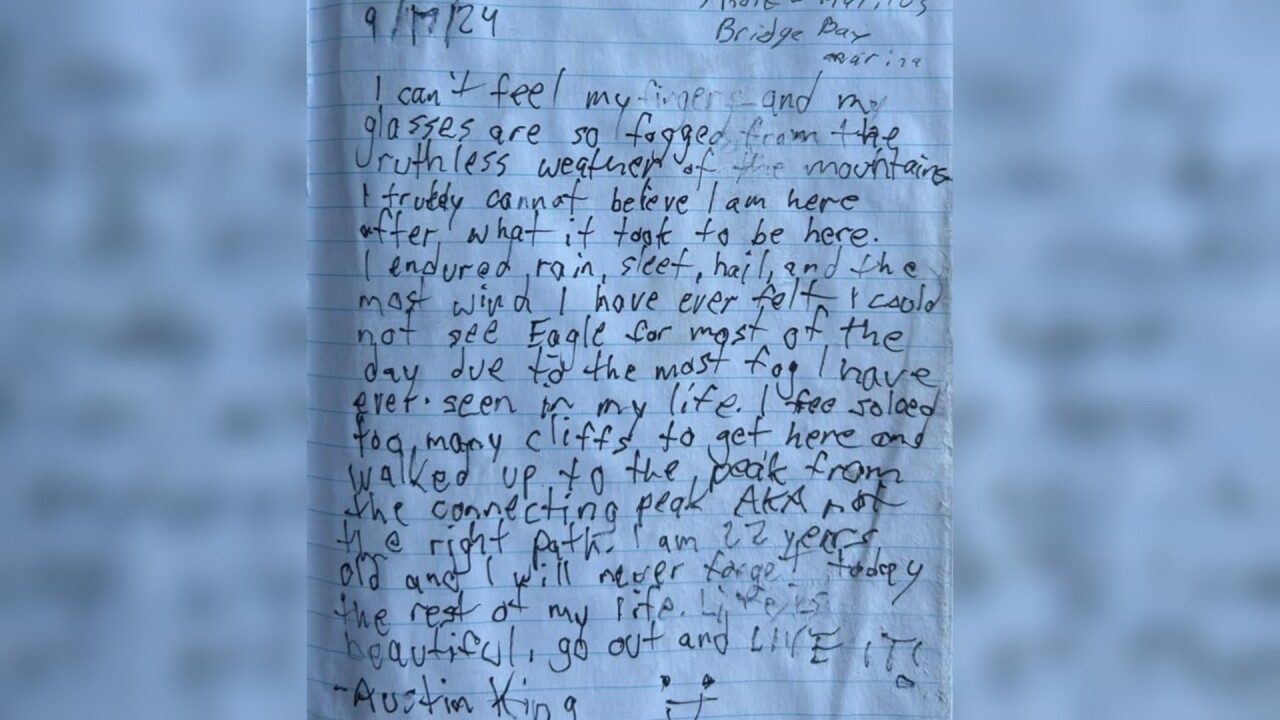 9/17/24
Bridge Bay
marina
I can't feel my fingers and my
glasses are so fogged from the
ruthless weather of the mountains
I truely cannot beleve I am here
after what it took to be here.
I endured rain, sleet, hail, and the
most wind I have ever felt I could
not see Eagle for most of the
day due to the most fog I have
ever seen in my life. I free soloed
too many cliffs to get here and
walked up to the peak from
the connecting peak AKA not
the right path. I am 22 years
old and I will never forget today
the rest of my life. Life is
beautiful, go out and LIVE IT!
-Austin King